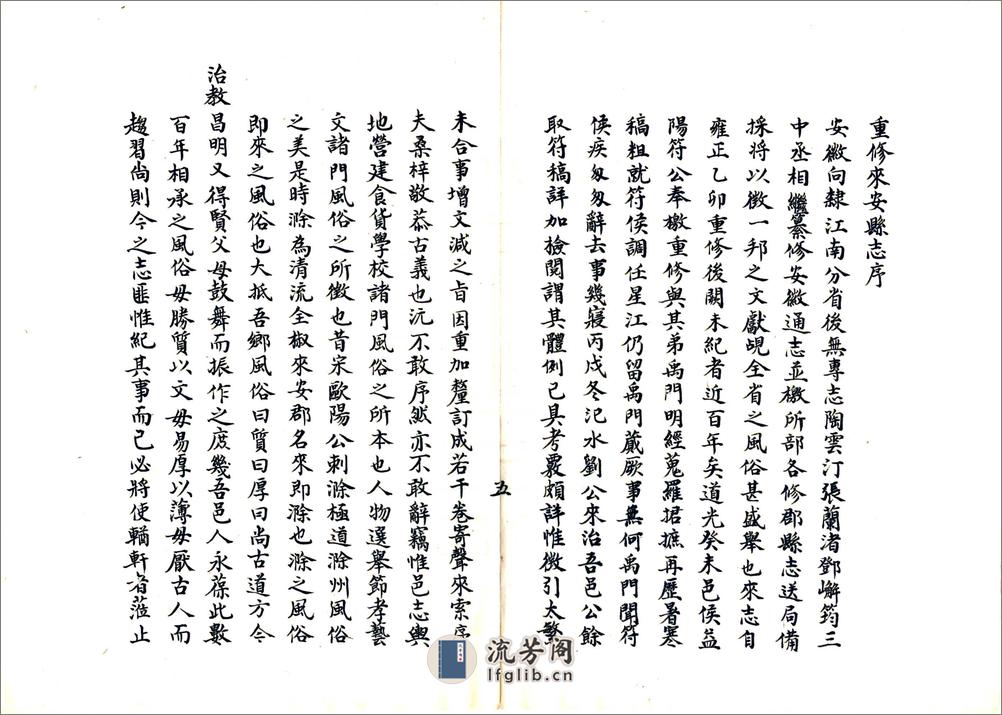 重修來安縣志序
安徽向隸江南分省後無專志陶雲汀張蘭渚鄧嶰筠三
中丞相繼纂修安徽通志並檄所部各修郡縣志送局備
採將以徵一邦之文獻覘全省之風俗甚盛舉也來志自
雍正乙卯重修後闕未紀者近百年矣道光癸未邑侯益
陽符公奉檄重修與其弟禹門明經蒐羅捃摭再歷暑寒
稿粗就符侯調任星江仍留禹門蕆厥事無何禹門聞符
侯疾匆匆辭去事幾寢丙戌冬汜水劉公來治吾邑公餘
取符稿詳加檢閱謂其體例已具考覈頗詳惟徵引太繁
五
未合事增文減之旨因重加釐訂成若干卷寄聲來索序
夫桑梓敬恭古義也沅不敢序然亦不敢辭竊惟邑志輿
地營建食貨學校諸門風俗之所本也人物選舉節孝藝
文諸門風俗之所徵也昔宋歐陽公刺滁極道滁州風俗
之美是時滁為清流全椒來安郡名來即滁也滁之風俗
即來之風俗也大抵吾鄉風俗曰質曰厚曰尚古道方今
治教
昌明又得賢父母鼓舞而振作之庶幾吾邑人永葆此數
百年相承之風俗毋勝質以文毋易厚以薄毋厭古人而
趨習尚則今之志匪惟紀其事而已必將使輶軒者蒞止
流芳阁
lfglib.cn